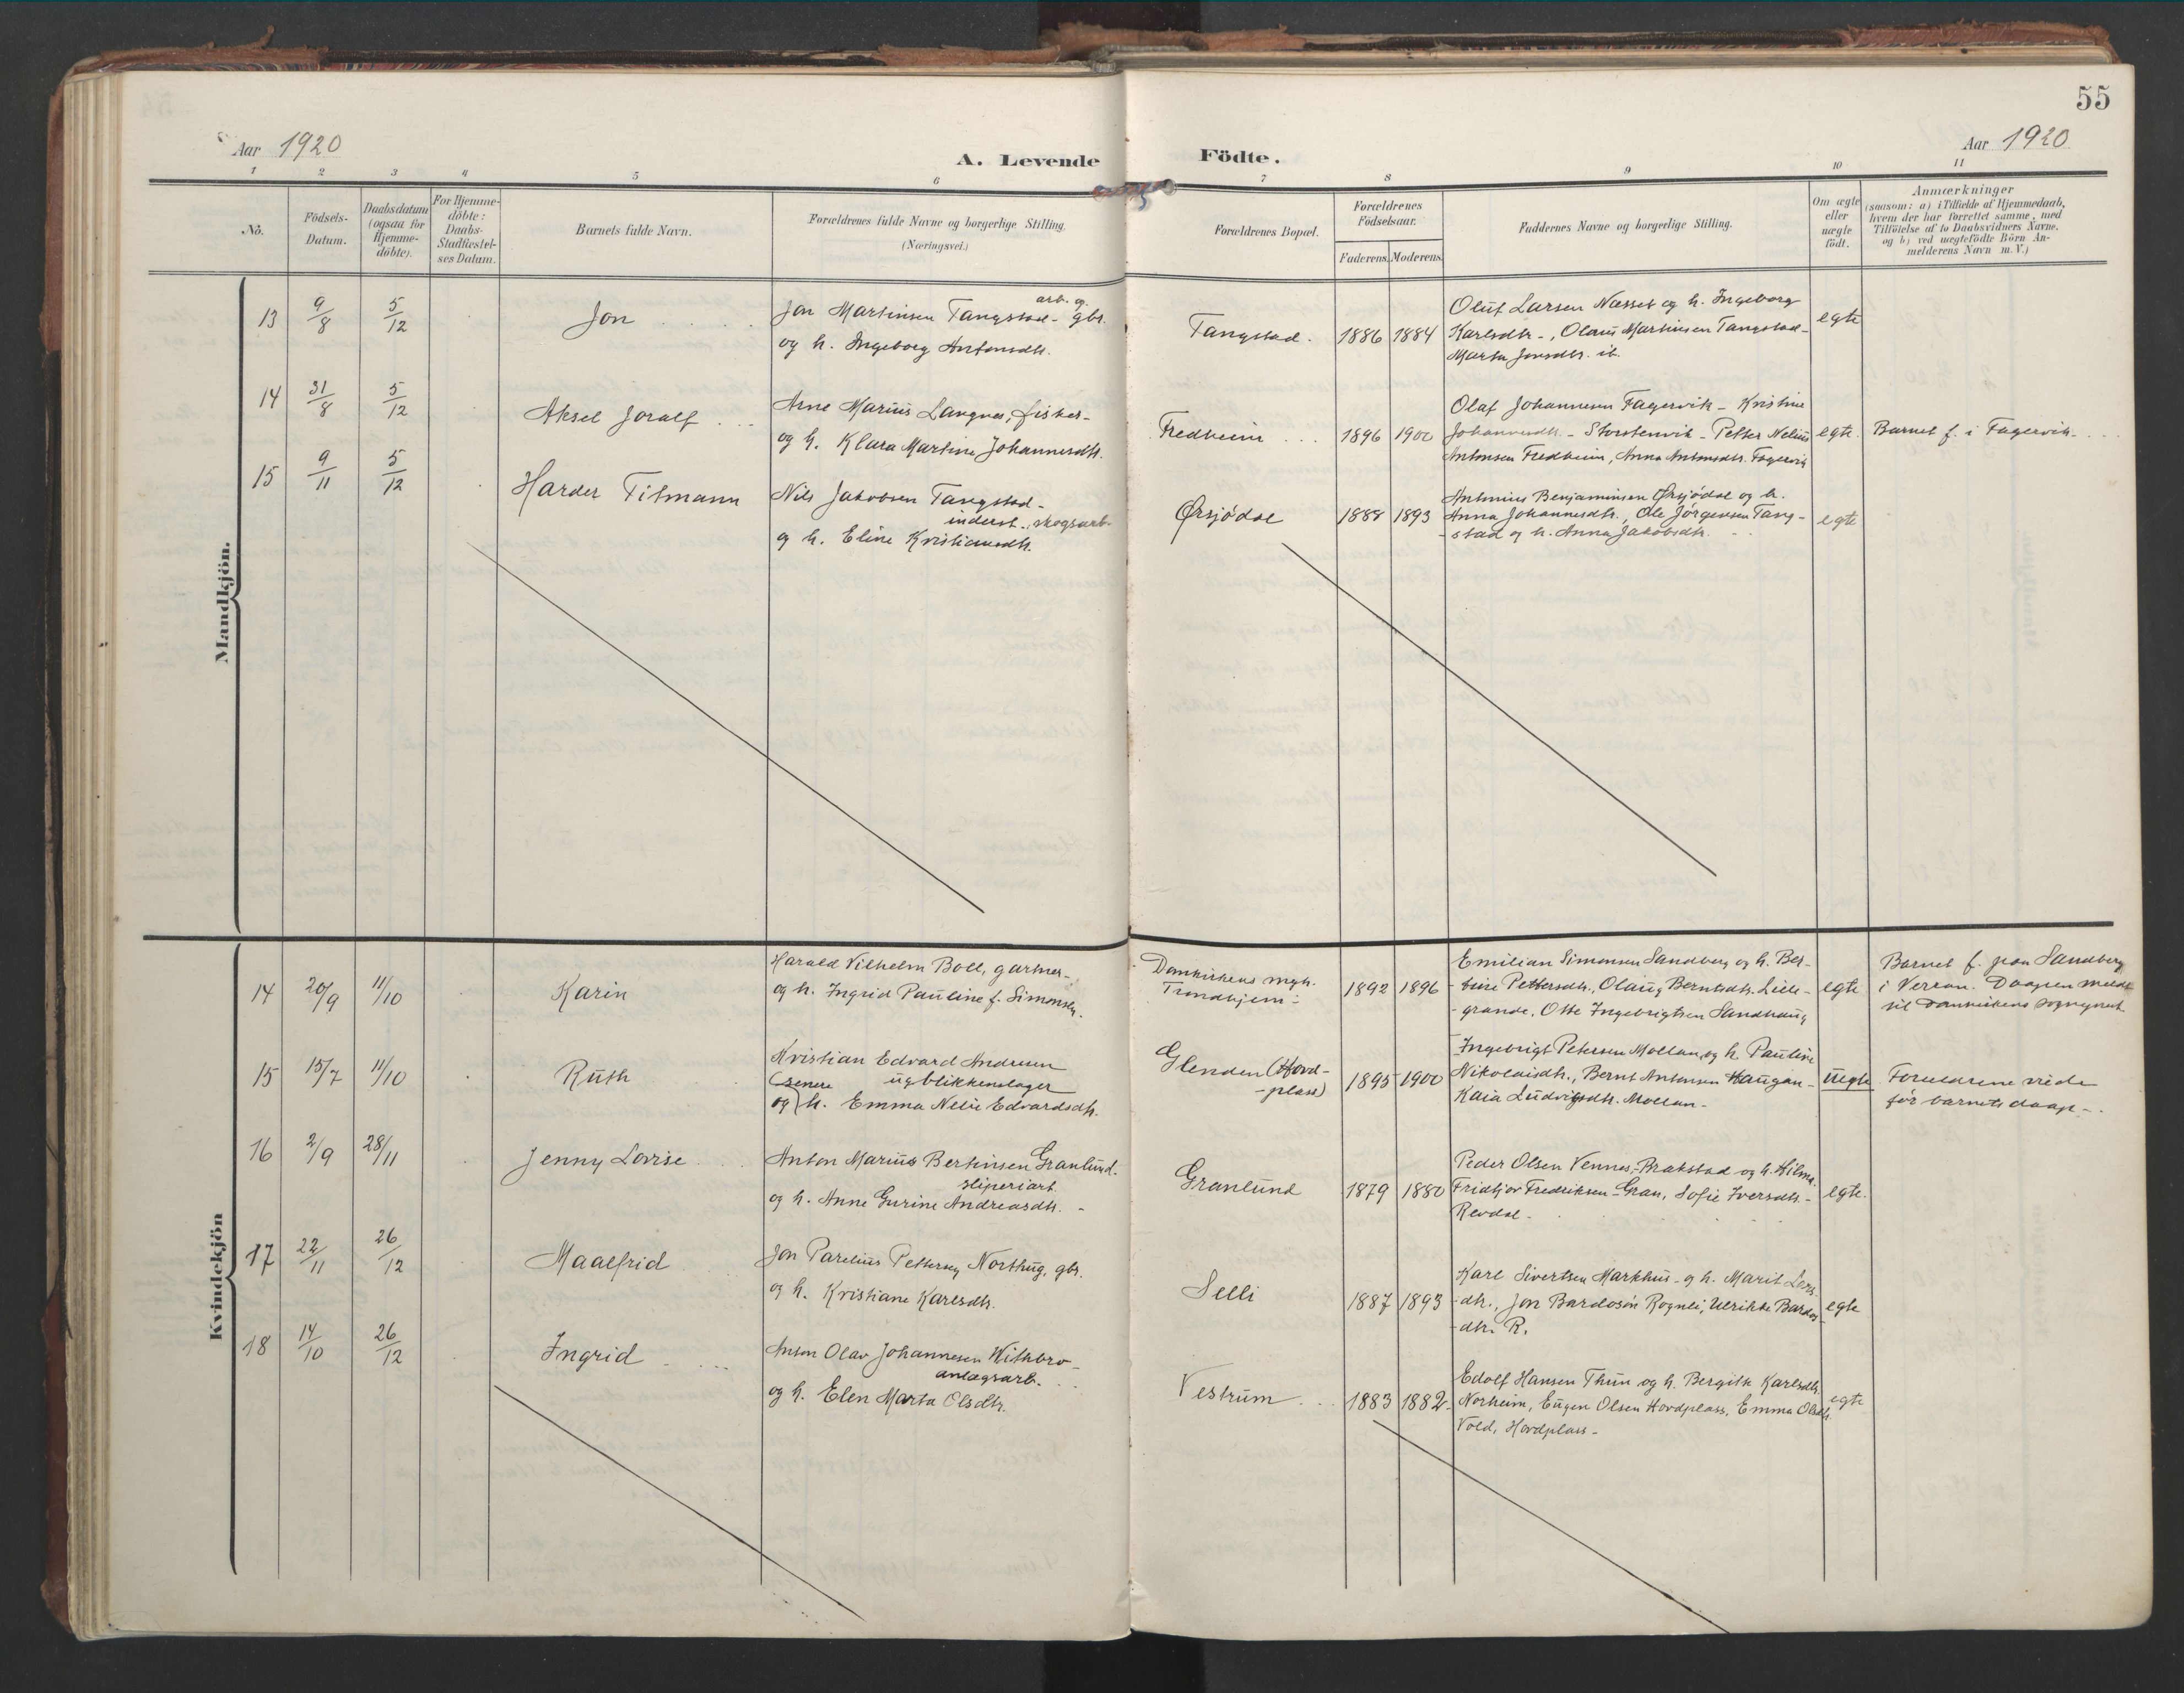 55
Aar 1920
A. Levende
Födte.
Aar 1920
1 2 3 4 5 6 7 8 9 10 11
No.
Födsels-
Datum.
Daabsdatum
(ogsaa for
Hjemme-
döbte).
For Hjemme-
döbte:
Daabs-
Stadfæstel-
ses Datum.
Barnets fulde Navn.
Forældrenes fulde Navne og borgerlige Stilling.
(Næringsvei.)
Forældrenes Bopæl.
Forældrenes
Födselsaar.
Faderens. Moderens.
Faddernes Navne og borgerlige Stilling.
Om ægte
eller
uægte
födt.
Anmærkninger
(saasom: a) i Tilfælde af Hjemmedaab,
hvem der har forrettet samme, med
Tilföielse af to Daabsvidners Navne,
og b) ved uægtefödte Börn An-
melderens Navn m. V.)
Mandkjön.
13 9/8 5/12
Jon
arb. og
Jon Martinsen Tangstad - gbr.
og h. Ingeborg Antonsdtr.
Tangstad.
1886 1884
Oluf Larsen Næsset og h. Ingeborg
Karlsdtr -, Olaus Martinsen Tangstad -
Marta Jonsdtr. ib.
egte
14 31/8 5/12
Aksel Joralf
Arne Marius Langnes, fisker -
og h. Klara Martine Johannesdtr.
Fredheim
1896 1900
Olaf Johannesen Fagervik - Kristine
Johannesdtr. - Storstenvik - Petter Nelius
Antonsen Fredheim, Anna Antonsdtr. Fagervik
egte.
Barnet f. i Fagervik.
15 9/11 5/12
Harder Tilmann
Nils Jakobsen Tangstad -
inderst., skogsarb.
og h. Eline Kristiansdtr.
Ørsjödal
1888 1893
Antonius Benjaminsen Ørsjödal og h.
Anna Johannesdtr., Ole Jörgensen Tang-
- stad og h. Anna Jakobsdtr.
egte
Kvindekjön
14 20/9 11/10
Karin
Harald Vilhelm Boll, gartner -
og h. Ingrid Pauline f. Simonsen.
Domkirkens mgh.
Trondhjem
1892 1896
Emilian Simonsen Sandberg og h. Ber-
- tine Pettersdtr., Olaug Berntsdtr. Lille-
- grande, Otte Ingebrigtsen Sandhaug
egte
Barnet f. paa Sandberg
i Verran. Daapen meldt
til Domkirkens sogneprest
15 15/7 11/10
Ruth
Kristian Edvard Andresen
(senere ug blikkenslager
og) h. Emma Nelie Edvardsdtr.
Glenden (Hovd-
- plass)
1895 1900
Ingebrigt Petersen Mollan og h. Pauline
Nikolaisdtr., Bernt Antonsen Haugan -
Kaia Ludvigsdtr. Mollan -
uegte
Foreldrene viede
før barnets daap -.
16 2/9 28/11
Jenny Lovise
Anton Marius Bertinsen Granlund -
sliperiarb.
og h. Anne Gurine Andreasdtr. -
Granlund
1879 1880
Peder Olsen Vennes, Brakstad og h. Hilma.
Fridtjov Fredriksen - Gran, Sofie Iversdtr. -
Revdal -
egte.
17 22/11 26/12
Maalfrid
Jon Parelius Pettersen Northug, gbr.
og h. Kristiane Karlsdtr.
Selli
1887 1893
Karl Sivertsen Markhus - og h. Marit Lars-
- dtr., Jon Bardosøn Rognli, Ulrikke Bardos-
- dtr. R.
egte
18 14/10 26/12
Ingrid
Anton Olav Johannesen Withbro -
anlægsarb.
og h. Elen Marta Olsdtr.
Vestrum
1883 1882.
Edolf Hansen Thun og h. Bergitte Karlsdtr.
Norheim, Eugen Olsen Hovdplass, Emma Olsdtr.
Vold, Hovdplass -
egte